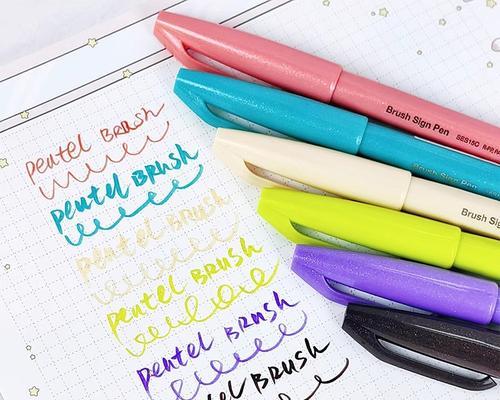 pentel Brush
pentel Brush
pentel Brush
pentel Brush
pentel Brush
Brush
Brush Sign Pen SES15C
Brush Sign Pen
Brush Sign